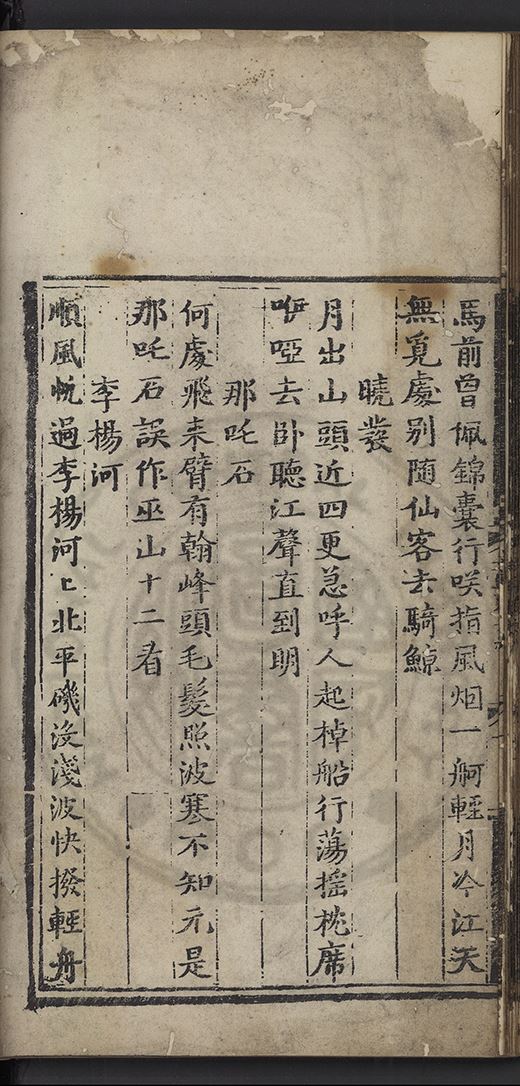 馬前曾佩錦囊行咲指風烟一舸輕月冷江天
無覓處別隨仙客去騎鯨
曉發
月出山頭近四更急呼人起棹船行蕩搖枕席
咿啞去卧聽江聲直到明
那吒石
何處飛来臂有翰峰頭毛髮照波寒不知元是
那吒石誤作巫山十二看
李楊河
順風帆過李楊河上北平磯没淺波快撥輕舟